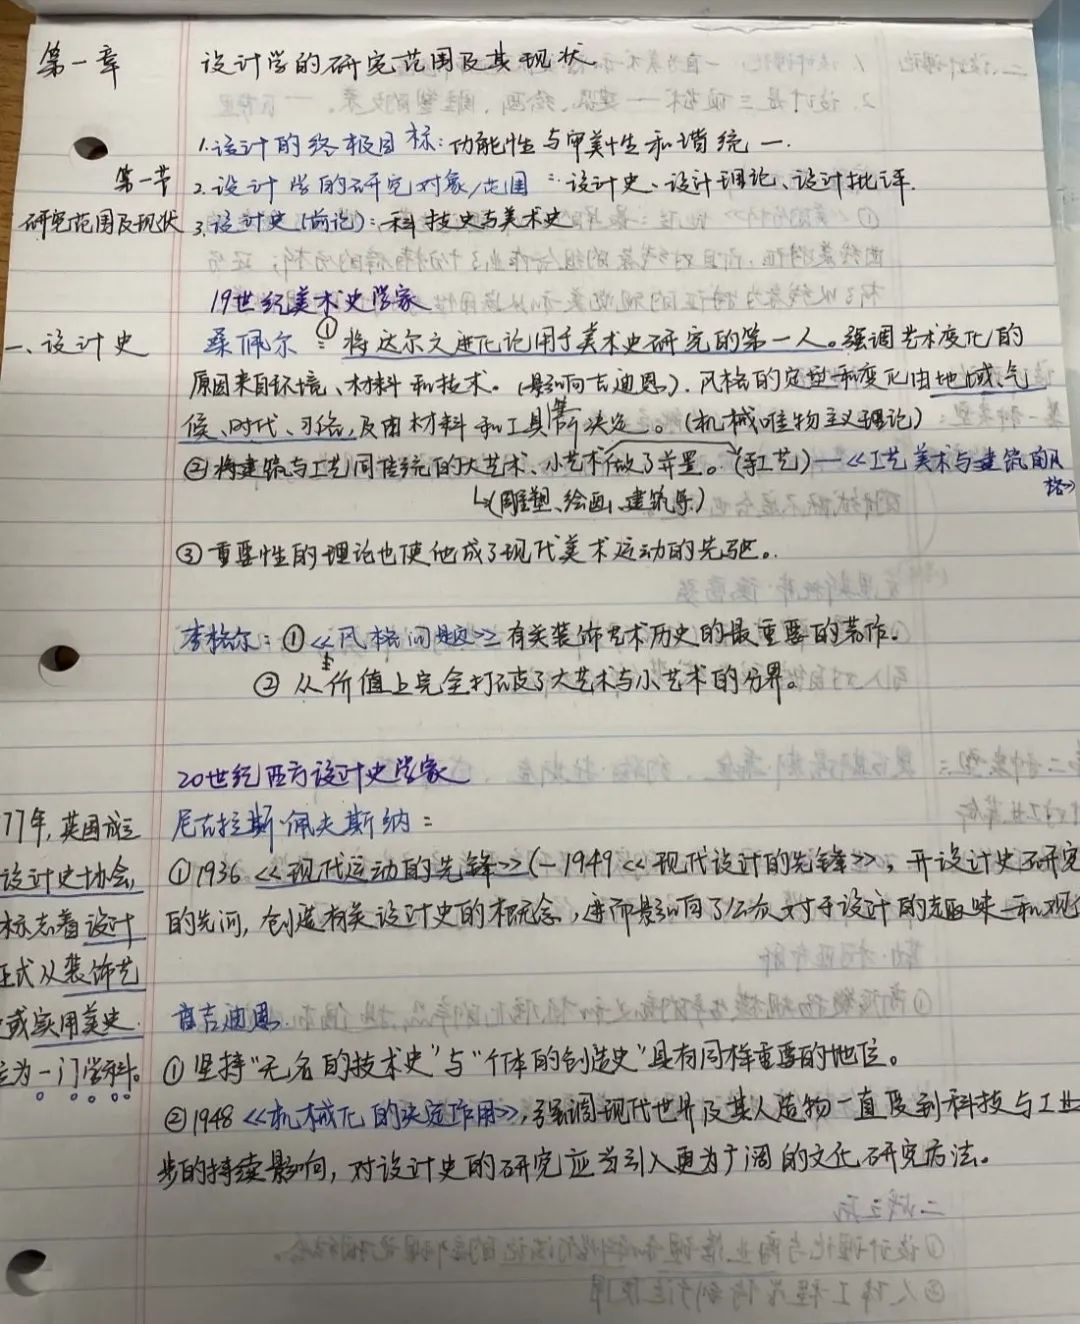 第一章 设计学的研究范围及其现状
1.设计的终极目标:功能性与审美性和谐统一.
第一节 2.设计学的研究对象/范围:设计史、设计理论、设计批评.
研究范围及现状 3.设计史(前论):科技史与美术史
19世纪美术史学家
一、设计史 桑佩尔:①将达尔文进化论用于美术史研究的第一人。强调艺术变化的
原因来自环境、材料和技术。(影响吉迪恩).风格的定型和变化由地域、气
候、时代、习俗,及由材料和工具等所决定。(机械唯物主义理论)
②将建筑与工艺同传统的大艺术、小艺术做了并置。(手工艺)—《工艺美术与建筑的风
格》
↳(雕塑、绘画、建筑乐)
③重要性的理论也使他成了现代美术运动的先驱。
李格尔:①《风格问题》有关装饰艺术历史的最重要的著作。
②从价值上完全打破了大艺术与小艺术的分界。
20世纪西方设计史学家
77年,英国成立 尼古拉斯·佩夫斯纳:
设计史协会, ①1936《现代运动的先锋》(—1949《现代设计的先锋》,开设计史研究
标志着设计 的先河,创造有关设计史的概念,进而影响了公众对于设计的趣味和观
正式从装饰艺
或实用美史 吉迪恩.
为一门学科。 ①坚持“无名的技术史”与“个体的创造史”具有同样重要的地位。
②1948《机械化的决定作用》,强调现代世界及其人造物一直受到科技与工业
步的持续影响,对设计史的研究应当引入更为广阔的文化研究方法。